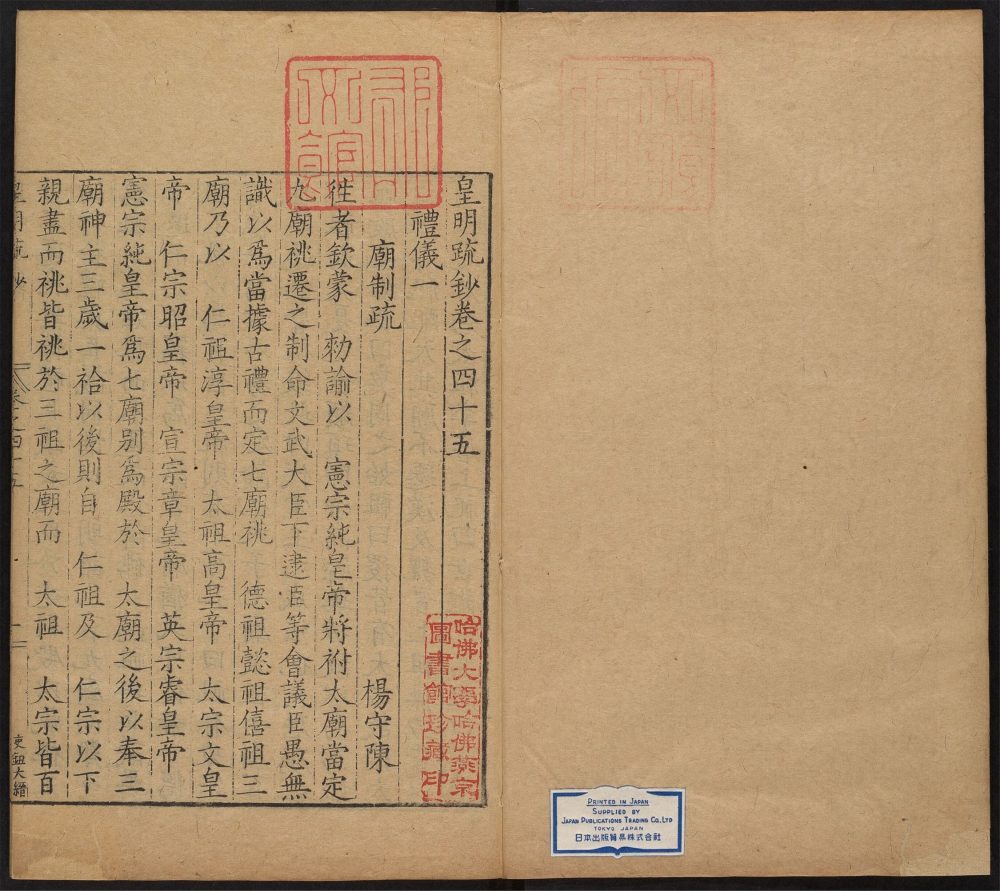 皇明疏鈔卷之四十五
禮儀一
廟制疏
楊守陳
徃者欽蒙 勅諭以 憲宗純皇帝將祔太廟當定
九廟祧遷之制命文武大臣下逮臣等會議臣愚無
識以爲當據古禮而定七廟祧 德祖懿祖僖祖三
廟乃以 仁祖淳皇帝 太祖高皇帝 太宗文皇
帝 仁宗昭皇帝 宣宗章皇帝 英宗睿皇帝
憲宗純皇帝爲七廟别爲殿於 太廟之後以奉三
廟神主三歲一祫以後則自 仁祖及 仁宗以下
親盡而祧皆祧於三祖之廟而 太祖 太宗皆百
皇明疏鈔
卷之四十五
一
哈佛大學哈佛燕京
圖書館珍藏印
PRINTED IN JAPAN
SUPPLIED BY
JAPAN PUBLICATIONS TRADING CO., LTD
TOKYO JAPAN
日本出版貿易株式会社